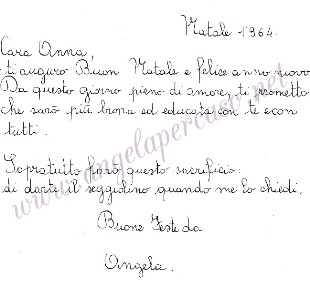 Natale - 1964.
Cara Anna,
ti auguro Buon Natale e felice anno nuovo
Da questo giorno pieno di amore, ti prometto
che sarò più brava ed educata con te e con
tutti.
Sopratutto farò questo sacrificio:
di darti il seggiolino quando me lo chiedi.
Buone Feste da
Angela.
www.angelapercaso.net